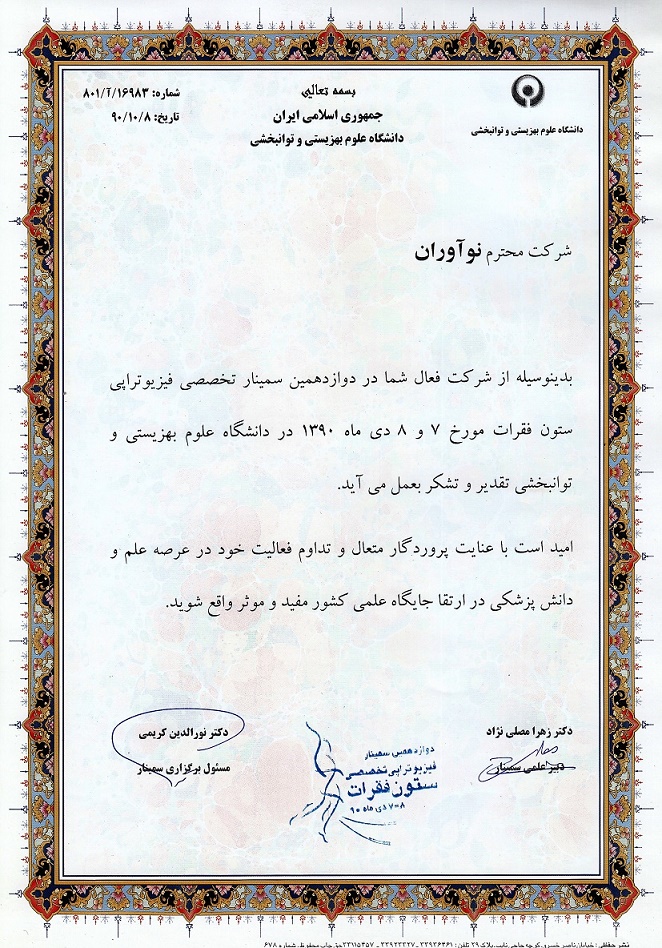 بسمه تعالی
جمهوری اسلامی ایران
دانشگاه علوم بهزیستی و توانبخشی
دانشگاه علوم بهزیستی و توانبخشی
شماره: ۸۰۱/آ/۱۶۹۸۳
تاریخ: ۹۰/۱۰/۸
شرکت محترم نوآوران
بدینوسیله از شرکت فعال شما در دوازدهمین سمینار تخصصی فیزیوتراپی
ستون فقرات مورخ ۷ و ۸ دی ماه ۱۳۹۰ در دانشگاه علوم بهزیستی و
توانبخشی تقدیر و تشکر بعمل می آید.
امید است با عنایت پروردگار متعال و تداوم فعالیت خود در عرصه علم و
دانش پزشکی در ارتقا جایگاه علمی کشور مفید و موثر واقع شوید.
دکتر زهرا مصلی نژاد
دبیر علمی سمینار
دوازدهمین سمینار
فیزیوتراپی تخصصی
ستون فقرات
۷-۸ دی ماه ۹۰
دکتر نورالدین کریمی
مسئول برگزاری سمینار
نشر حقانی: خیابان ناصر خسرو، کوچه حاجی نایب، پلاک ۲۹ تلفن: ۳۳۹۲۶۴۶۱ - ۳۳۹۲۳۳۲۷ - ۳۳۱۱۵۴۵۷ حق چاپ محفوظ. شماره ۶۷۸